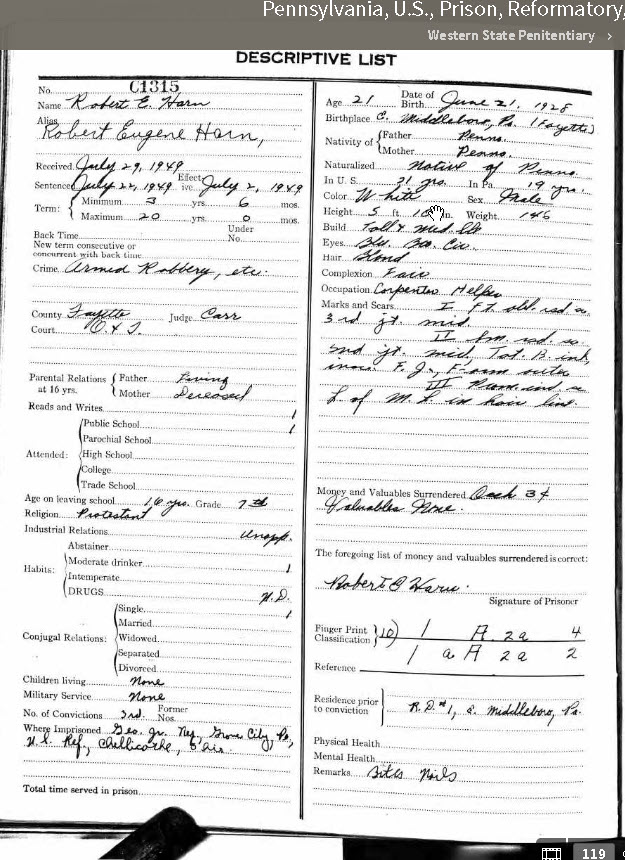 Pennsylvania, U.S., Prison, Reformatory,
Western State Penitentiary >
DESCRIPTIVE LIST
No. C1315
Name Robert E. Harn
Alias
Robert Eugene Harn,
Received July 29, 1949
Sentenced July 22, 1949 Effective July 2, 1949
Term: Minimum 3 yrs. 6 mos.
Maximum 20 yrs. 0 mos.
Back Time Under No.
New term consecutive or
concurrent with back time
Crime Armed Robbery, etc.
County Fayette Judge Carr
Court O. & T.
Parental Relations at 16 yrs. Father Living
Mother Deceased
Reads and Writes 1
Attended: Public School 1
Parochial School
High School
College
Trade School
Age on leaving school 16 yrs. Grade 7th
Religion Protestant
Industrial Relations Unapp.
Habits: Abstainer
Moderate drinker 1
Intemperate
DRUGS N.D.
Conjugal Relations: Single 1
Married
Widowed
Separated
Divorced
Children living None
Military Service None
No. of Convictions 3rd. Former Nos.
Where Imprisoned Geo. Jr. Grove City, Pa,
U.S. Ref., Chillicothe,
Total time served in prison
Age 21 Date of Birth June 21, 1928
Birthplace Middleboro, Pa. (Fayette)
Nativity of Father Penna.
Mother Penna.
Naturalized Native of Penna.
In U. S. 21 yrs. In Pa. 19 yrs.
Color White Sex Male
Height 5 ft. in. Weight 146
Build Tall & Med. Sl.
Eyes Blu.
Hair Blond
Complexion Fair
Occupation Carpenter Helper
Marks and Scars I Ft. obl. rd a.
3rd jt. mid.
II Sm. a.
2nd jt. mid, Tat. B. ink,
F. J., F-arm outer
III a.
L. of M. L. in hair line.
Money and Valuables Surrendered Cash 3¢
Valuables None.
The foregoing list of money and valuables surrendered is correct:
Robert E Harn.
Signature of Prisoner
Finger Print Classification (10) 1 A 2a 4
1 a A 2a 2
Reference
Residence prior to conviction R.D.#1, Middleboro, Pa.
Physical Health
Mental Health
Remarks Bites Nails
119